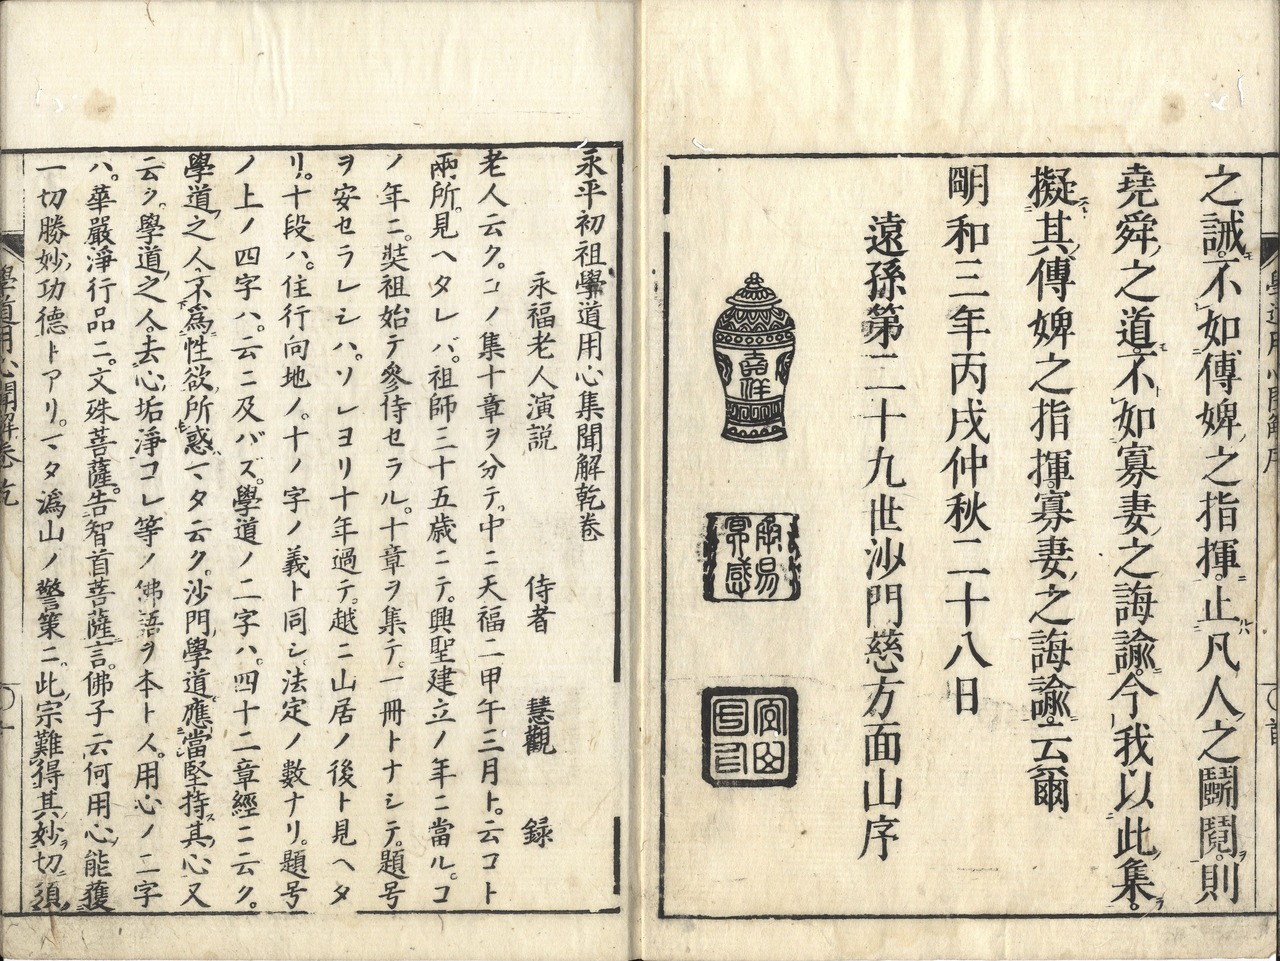 之誡不如傳婢之指揮止凡人之鬭䦧則
堯舜之道不如寡妻之誨諭今我以此集
擬其傳婢之指揮寡妻之誨諭云爾
明和三年丙戌仲秋二十八日
遠孫第二十九世沙門慈方面山序
永平初祖學道用心集聞解乾卷
永福老人演説　侍者　慧觀　録
老人云ク。コノ集十章ヲ分テ。中ニ天福二甲午三月ト。云コト
兩所見ヘタレバ。祖師三十五歳ニテ。興聖建立ノ年ニ當ル。コ
ノ年ニ。奘祖始テ參侍セラル。十章ヲ集テ。一冊トナシテ。題号
ヲ安セラレシハ。ソレヨリ十年過テ。越ニ山居ノ後ト見ヘタ
リ。十段ハ。住行向地ノ。十ノ字ノ義ト同シ。法定ノ數ナリ。題号
ノ上ノ四字ハ。云ニ及バズ。學道ノ二字ハ。四十二章經ニ云ク。
學道之人不為性欲所惑マタ云ク。沙門學道應當堅持其心又
云ク。學道之人去心垢淨コレ等ノ佛語ヲ本トス。用心ノ二字
ハ。華嚴淨行品ニ。文殊菩薩告智首菩薩言。佛子云何用心能獲
一切勝妙功德トアリ。マタ溈山ノ警策ニ。此宗難得其妙切須
學道用心聞解卷乾
〇一